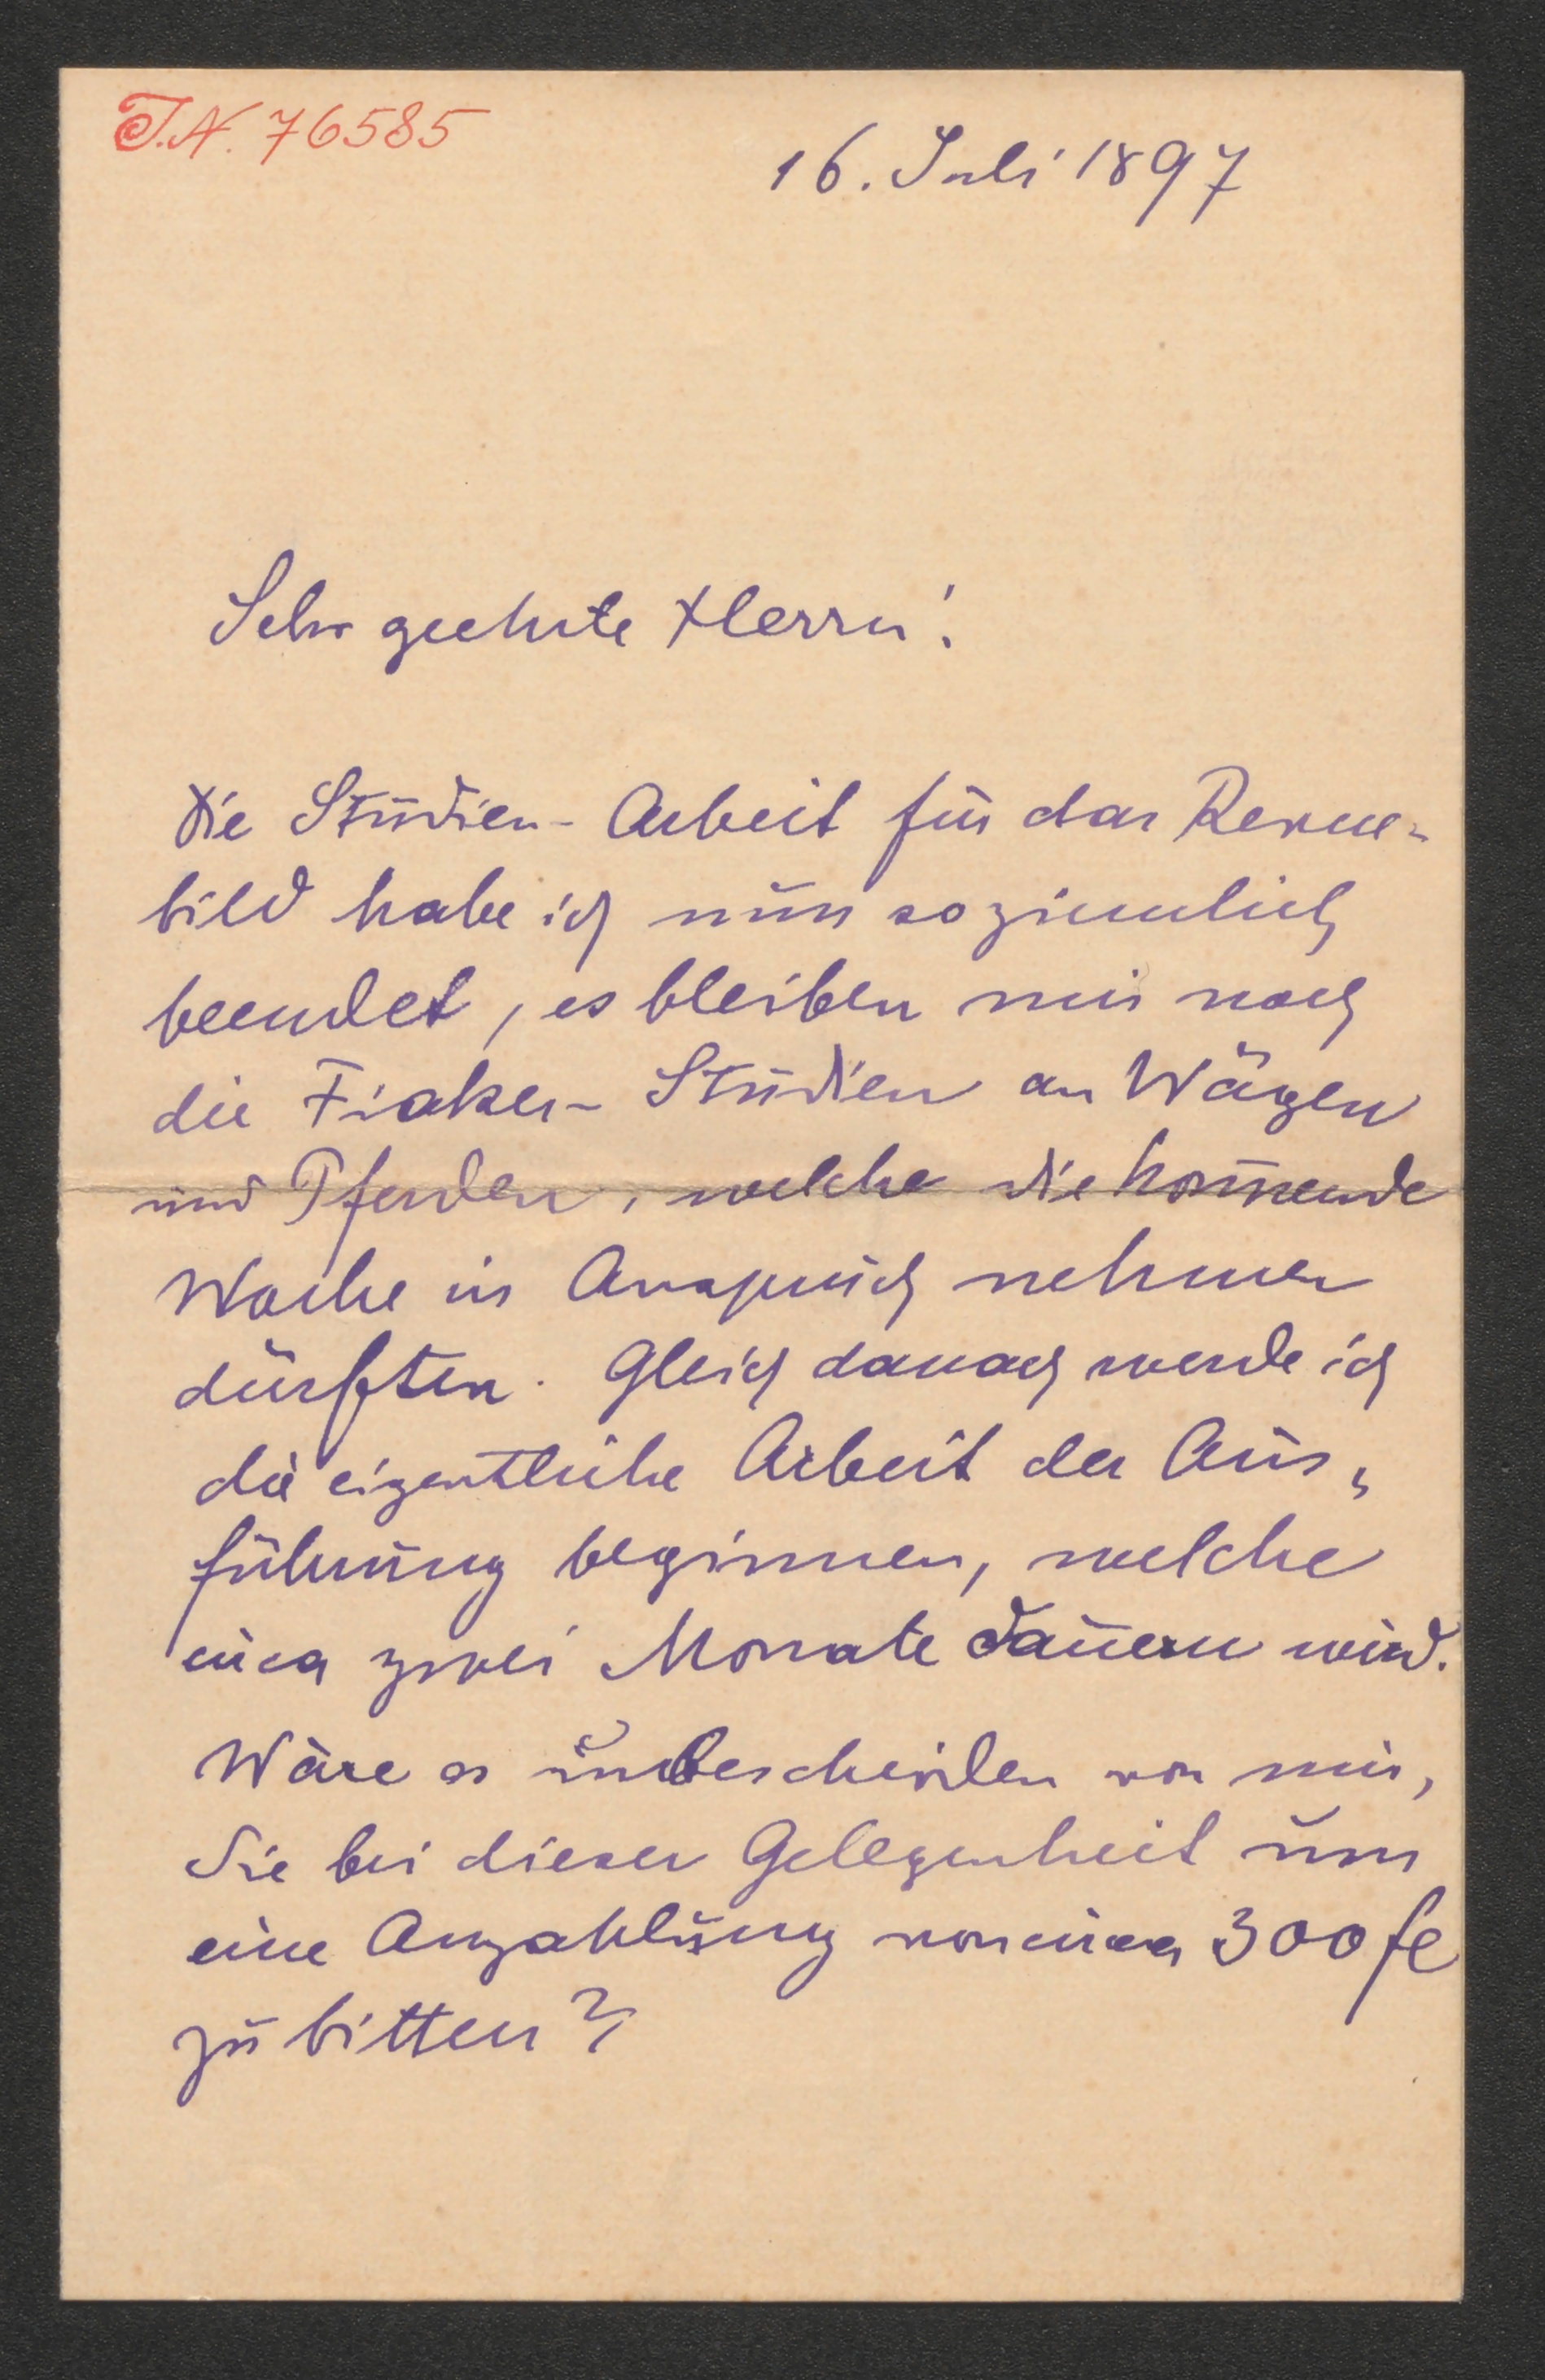 I.N. 76585
16. Juli 1897
Sehr geehrte Herrn!
Die Studien-Arbeit für das Renn-
bild habe ich nun so ziemlich
beendet, es bleiben mir noch
die Fiaker-Studien an Wägen
und Pferden, welche die kom̄ende
Woche in Anspruch nehmen
dürften. Gleich danach werde ich
die eigentliche Arbeit der Aus-
führung beginnen, welche
circa zwei Monate dauern wird.
Wäre es unbescheiden von mir,
Sie bei dieser Gelegenheit um
eine Anzahlung von circa 300 fl
zu bitten?